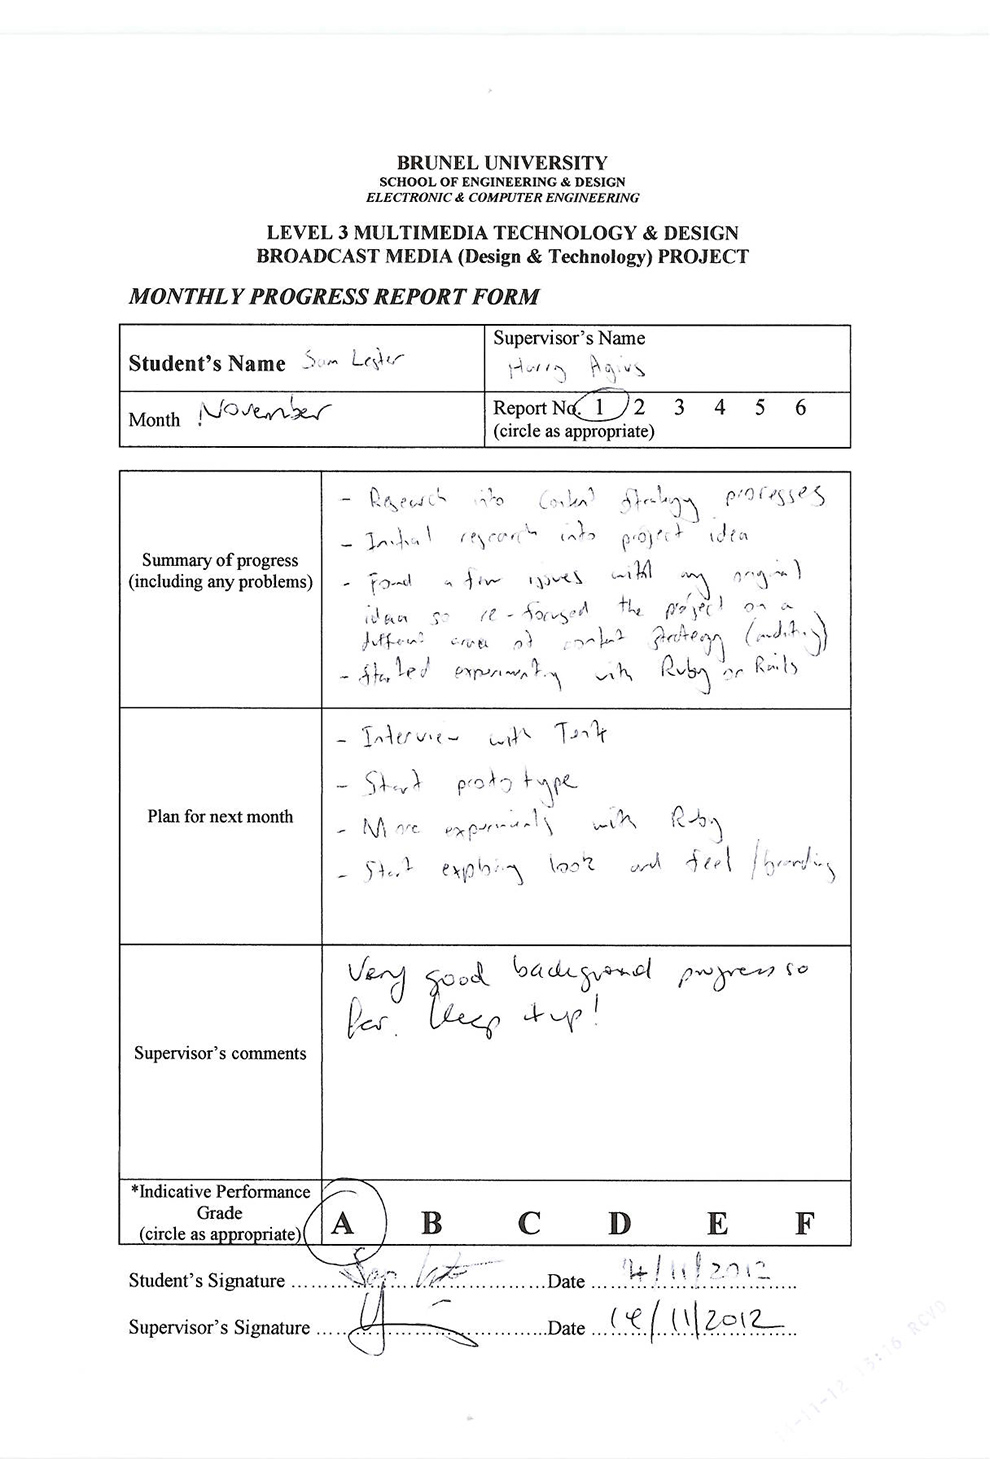 BRUNEL UNIVERSITY
SCHOOL OF ENGINEERING & DESIGN
ELECTRONIC & COMPUTER ENGINEERING
LEVEL 3 MULTIMEDIA TECHNOLOGY & DESIGN
BROADCAST MEDIA (Design & Technology) PROJECT
MONTHLY PROGRESS REPORT FORM
Student's Name Sam Lester
Supervisor's Name
Harry Agius
Month November
Report No. 1 2 3 4 5 6
(circle as appropriate)
Summary of progress
(including any problems)
- Research into Content Strategy processes
- Initial research into project idea
- Found a few issues with my original
idea so re-focused the project on a
different area of content strategy (auditing)
- Started experimenting with Ruby on Rails
Plan for next month
- Interview with
- Start prototype
- More experiments with Ruby
- Start exploring look and feel / branding
Supervisor's comments
Very good background progress so
far. Keep it up!
*Indicative Performance
Grade
(circle as appropriate)
A B C D E F
Student's Signature Date 14/11/2012
Supervisor's Signature Date 14/11/2012
-11-12 13:16 RCVD